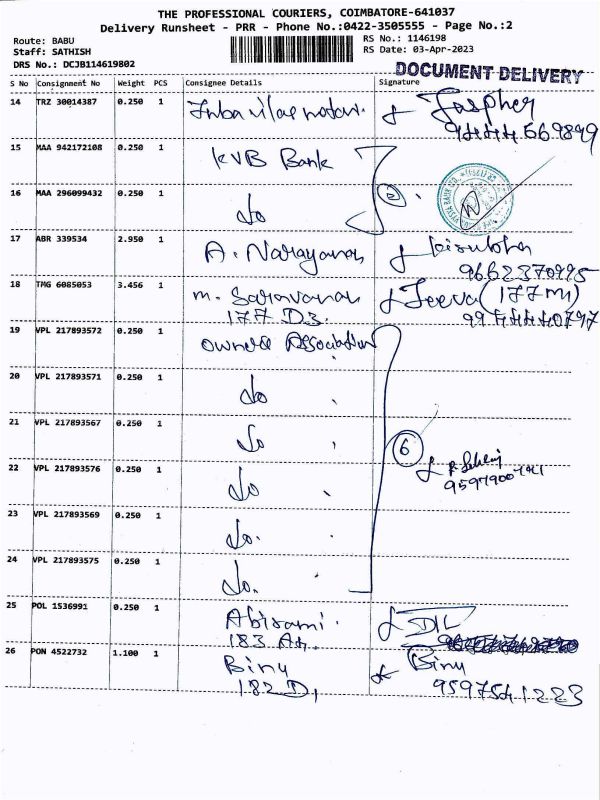 THE PROFESSIONAL COURIERS, COIMBATORE-641037
Delivery Runsheet - PRR - Phone No.:0422-3505555 - Page No.:2
Route: BABU
RS No.: 1146198
Staff: SATHISH
RS Date: 03-Apr-2023
DRS No.: DCJB114619802
DOCUMENT DELIVERY
S No Consignment No Weight PCS Consignee Details Signature
14 TRZ 30014387 0.250 1 Jaspher
9444669849
15 MAA 942172108 0.250 1 KVB Bank
16 MAA 296099432 0.250 1 do 2
17 ABR 339534 2.950 1 A. Narayanan
9662370995
18 TMG 6085053 3.456 1 m. Saravanan Jeeva (177 m)
177 D3. 9944440797
19 VPL 217893572 0.250 1 owners Association
20 VPL 217893571 0.250 1 do
21 VPL 217893567 0.250 1 do
6
22 VPL 217893576 0.250 1 do
23 VPL 217893569 0.250 1 do.
24 VPL 217893575 0.250 1 do.
25 POL 1536991 0.250 1 Abirami
183 A4.
26 PON 4522732 1.100 1 Binu Binu
182 D, 9597541223